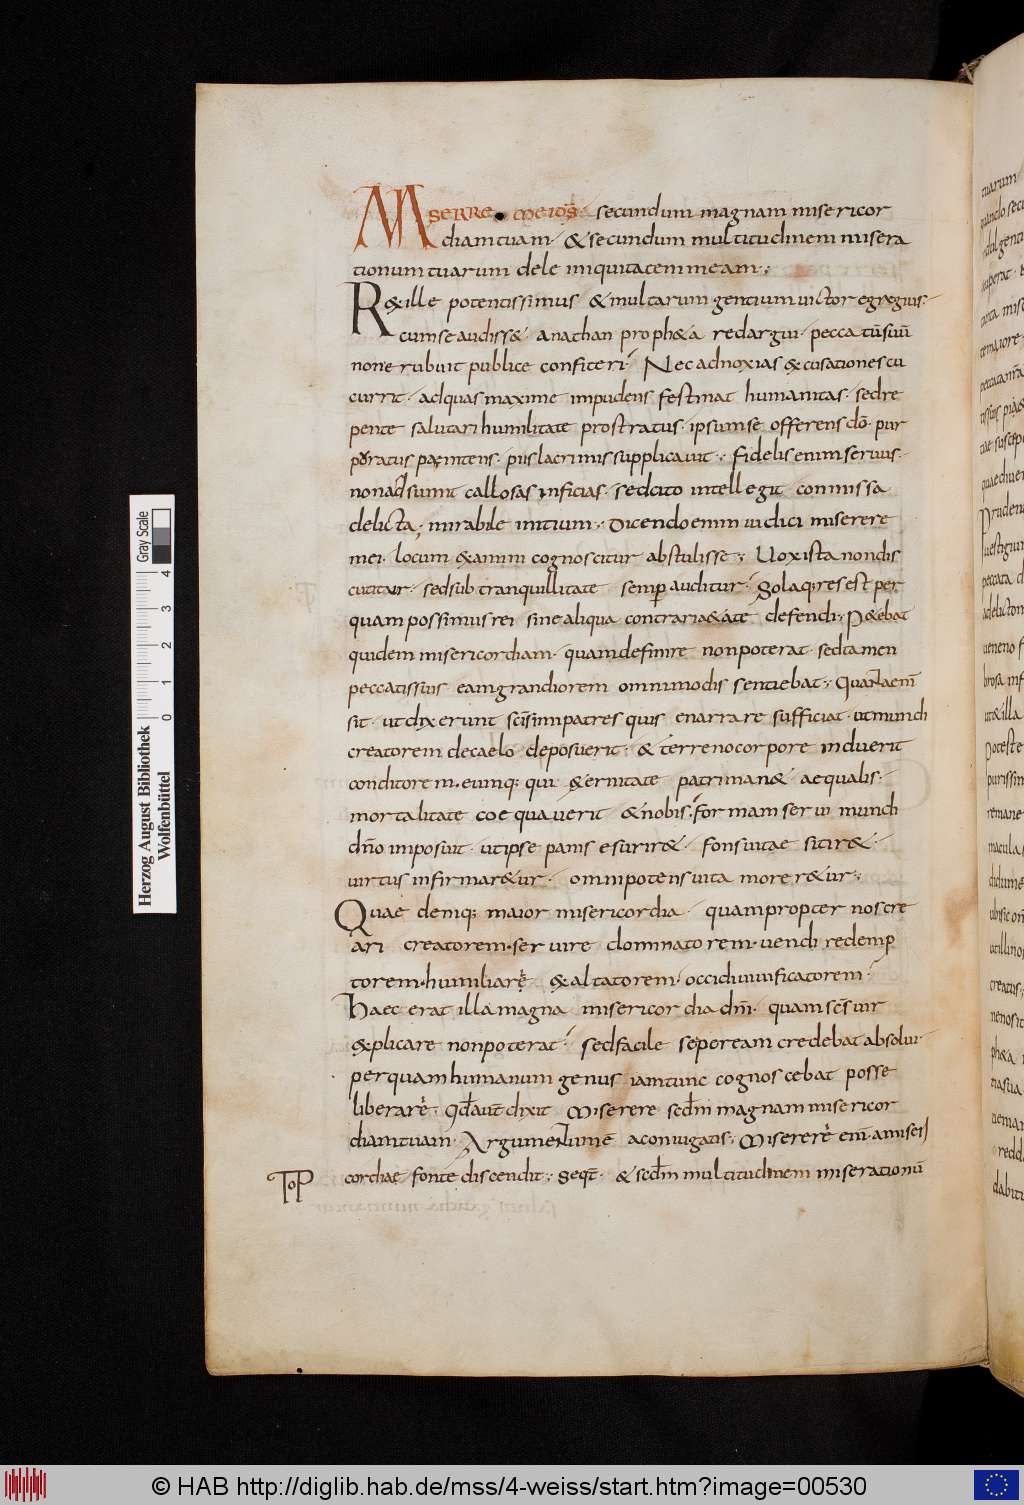 MISERERE mei dš secundum magnam misericor
diam tuam · & secundum multitudinem misera
tionum tuarum dele iniquitatem meam ·,
R&ille potentissimus & multarum gentium uictor egregius ·
cum se audiss& · a nathan proph&a redargui · pecca tū suū
non erubuit publice confiteri · Nec ad noxias &cusationes cu
currit · ad quas maxime impudens festinat humanitas · sed re
pente salutari humilitate prostratus · ipsum se offerens dō · pur
puratus paenitens · piis lacrimis supplicauit ·, fidelis enim seruus ·
non adsumit callosas inficias · sed cito intellegit commissa
delicta · mirabile initium ·, dicendo enim iudici miserere
mei · locum &amini cognoscitur abstulisse ·, Uox ista non dis
cutitur · sed sub tranquillitate semp auditur · Sola q; res est per
quam possimus rei sine aliqua contrari&ate defendi ·, P&ebat
quidem misericordiam · quam definire non poterat · sed tamen
peccatis suis eam grandiorem omnimodis sentiebat ·, Quanta enī
sit · ut dixerunt scīssimi patres quis enarrare sufficiat · ut mundi
creatorem de caelo deposuerit · & terreno corpore induerit
conditorem · eumq; qui &ernitate patri man& aequalis ·
mortalitate coequauerit & nobis · formam serui mundi
dn̄o imposuit · ut ipse panis esurir& · fons uitae sitir& ·
uirtus infirmar&ur · omnipotens uita morer&ur ·,
Quae deniq; maior misericordia · quam propter nos cre
ari creatorem · seruire dominatorem · uendi redemp
torem · humiliare &altatorem · occidi uiuificatorem ·
Haec erat illa magna misericordia dn̄i · quam scs̄ uir
&plicare non poterat · sed facile se per eam credebat absolui ·
per quam humanum genus iam tunc cognoscebat posse
liberare · qd̄ aut̄ dixit miserere sed̄m magnam misericor
diam tuam · Argumentum ē a coniugatis ·, Miserere enī · a miseri
TOP cordiae fonte discendit ·, Seqt̄ · & sed̄m multitudinem miserationū
Herzog August Bibliothek
Wolfenbüttel
Gray Scale
0 1 2 3 4
© HAB http://diglib.hab.de/mss/4-weiss/start.htm?image=00530